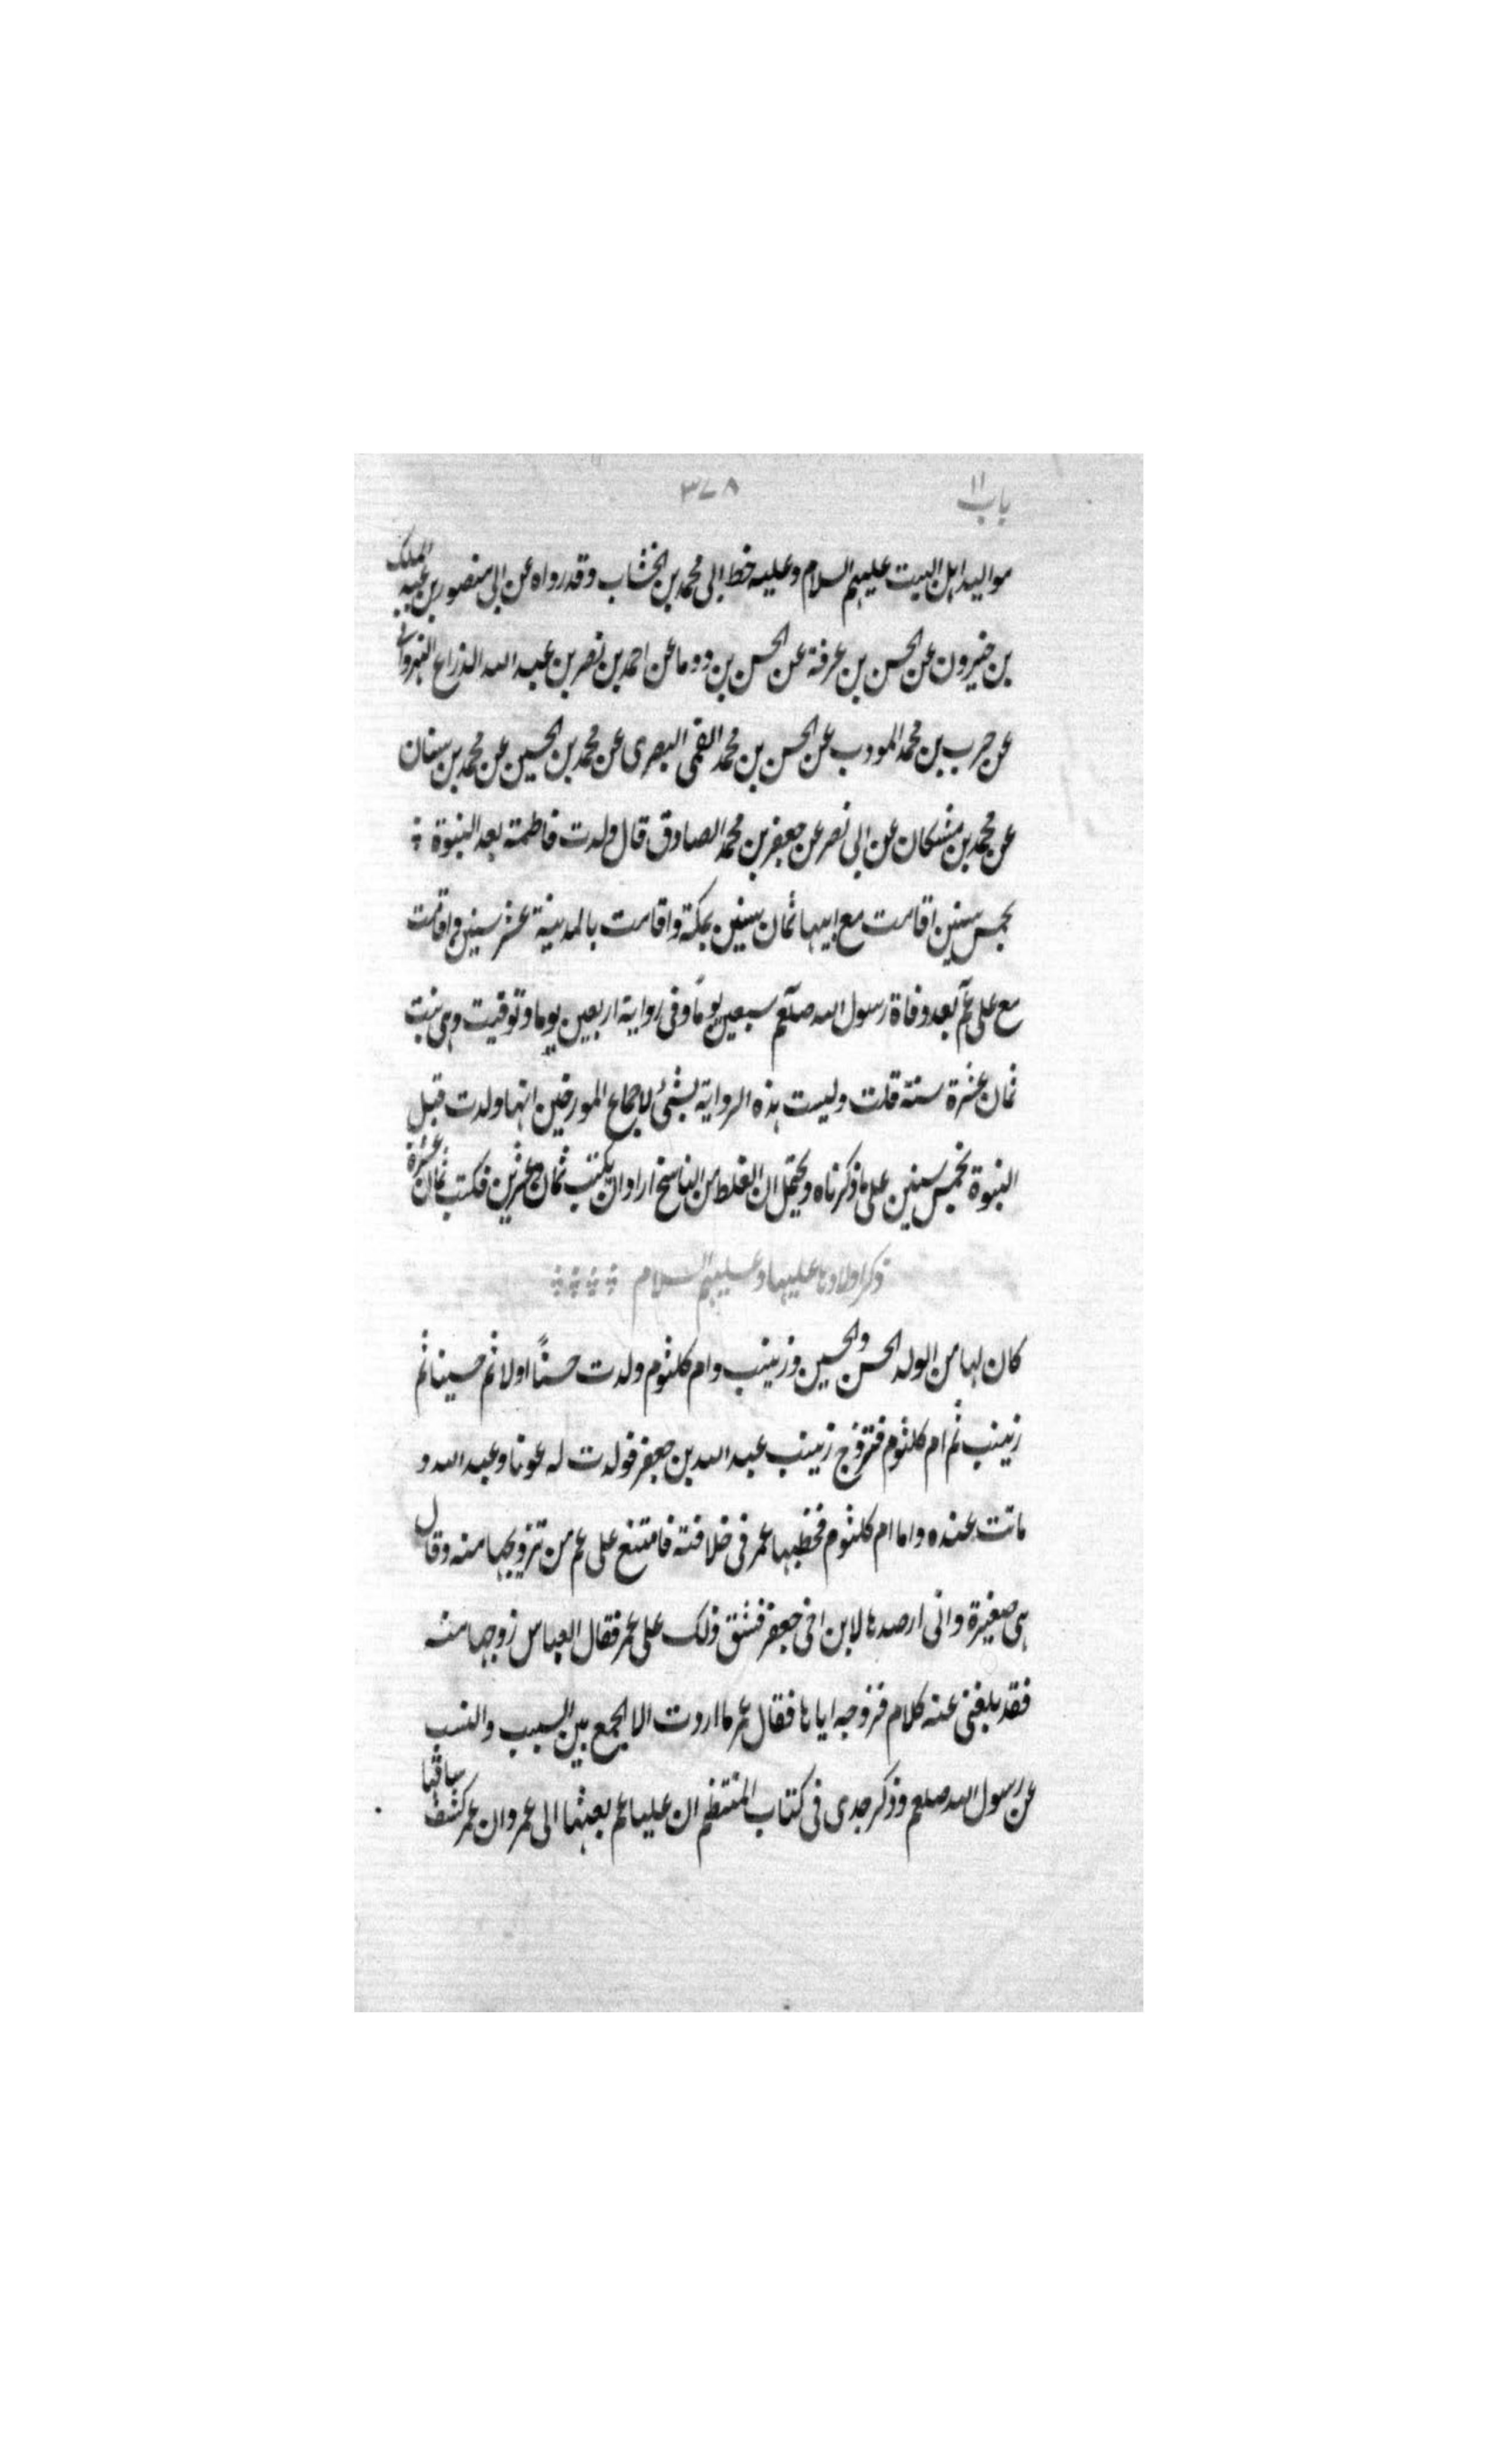 باب ١١ ٣٧٨
مواليد اهل البيت عليهم السلام وعليه خط ابى محمد بن الخشاب وقد رواه عن ابى منصور بن عبد الملك
بن خيرون عن الحسن بن عرفة عن الحسن بن دوما عن احمد بن نصر بن عبد الله الذراع النهروانى
عن حرب بن محمد المودب عن الحسن بن محمد القمى البصرى عن محمد بن الحسين عن محمد بن سنان
عن محمد بن مشكان عن ابى نصر عن جعفر بن محمد الصادق قال ولدت فاطمة بعد النبوة
بخمس سنين اقامت مع ابيها ثمان سنين بمكة واقامت بالمدينة عشر سنين واقامت
مع على عم بعد وفاة رسول الله صلعم سبعين يومًا وفى رواية اربعين يوما وتوفيت وهى بنت
ثمان عشرة سنة قلت وليست هذه الرواية بشئ لاجماع المورخين انها ولدت قبل
النبوة بخمس سنين على ما ذكرناه ويحتمل ان الغلط من الناسخ اراد ان يكتب ثمان وعشرين فكتب ثمان عشرة
ذكر اولادها عليها وعليهم السلام
كان لها من الولد الحسن والحسين وزينب وام كلثوم ولدت حسنًا اولا ثم حسينا ثم
زينب ثم ام كلثوم فتزوج زينب عبد الله بن جعفر فولدت له عونا وعبد الله و
ماتت عنده واما ام كلثوم فخطبها عمر فى خلافته فامتنع على عم من تزويجها منه وقال
هى صغيرة وانى ارصدها لابن اخى جعفر فشق ذلك على عمر فقال العباس زوجها منه
فقد بلغنى عنه كلام فزوجه اياها فقال عمر ما اردت الا الجمع بين السبب والنسب
عن رسول الله صلعم وذكر جدى فى كتاب المنتظم ان عليا عم بعثها الى عمر وان عمر كشف ساقها